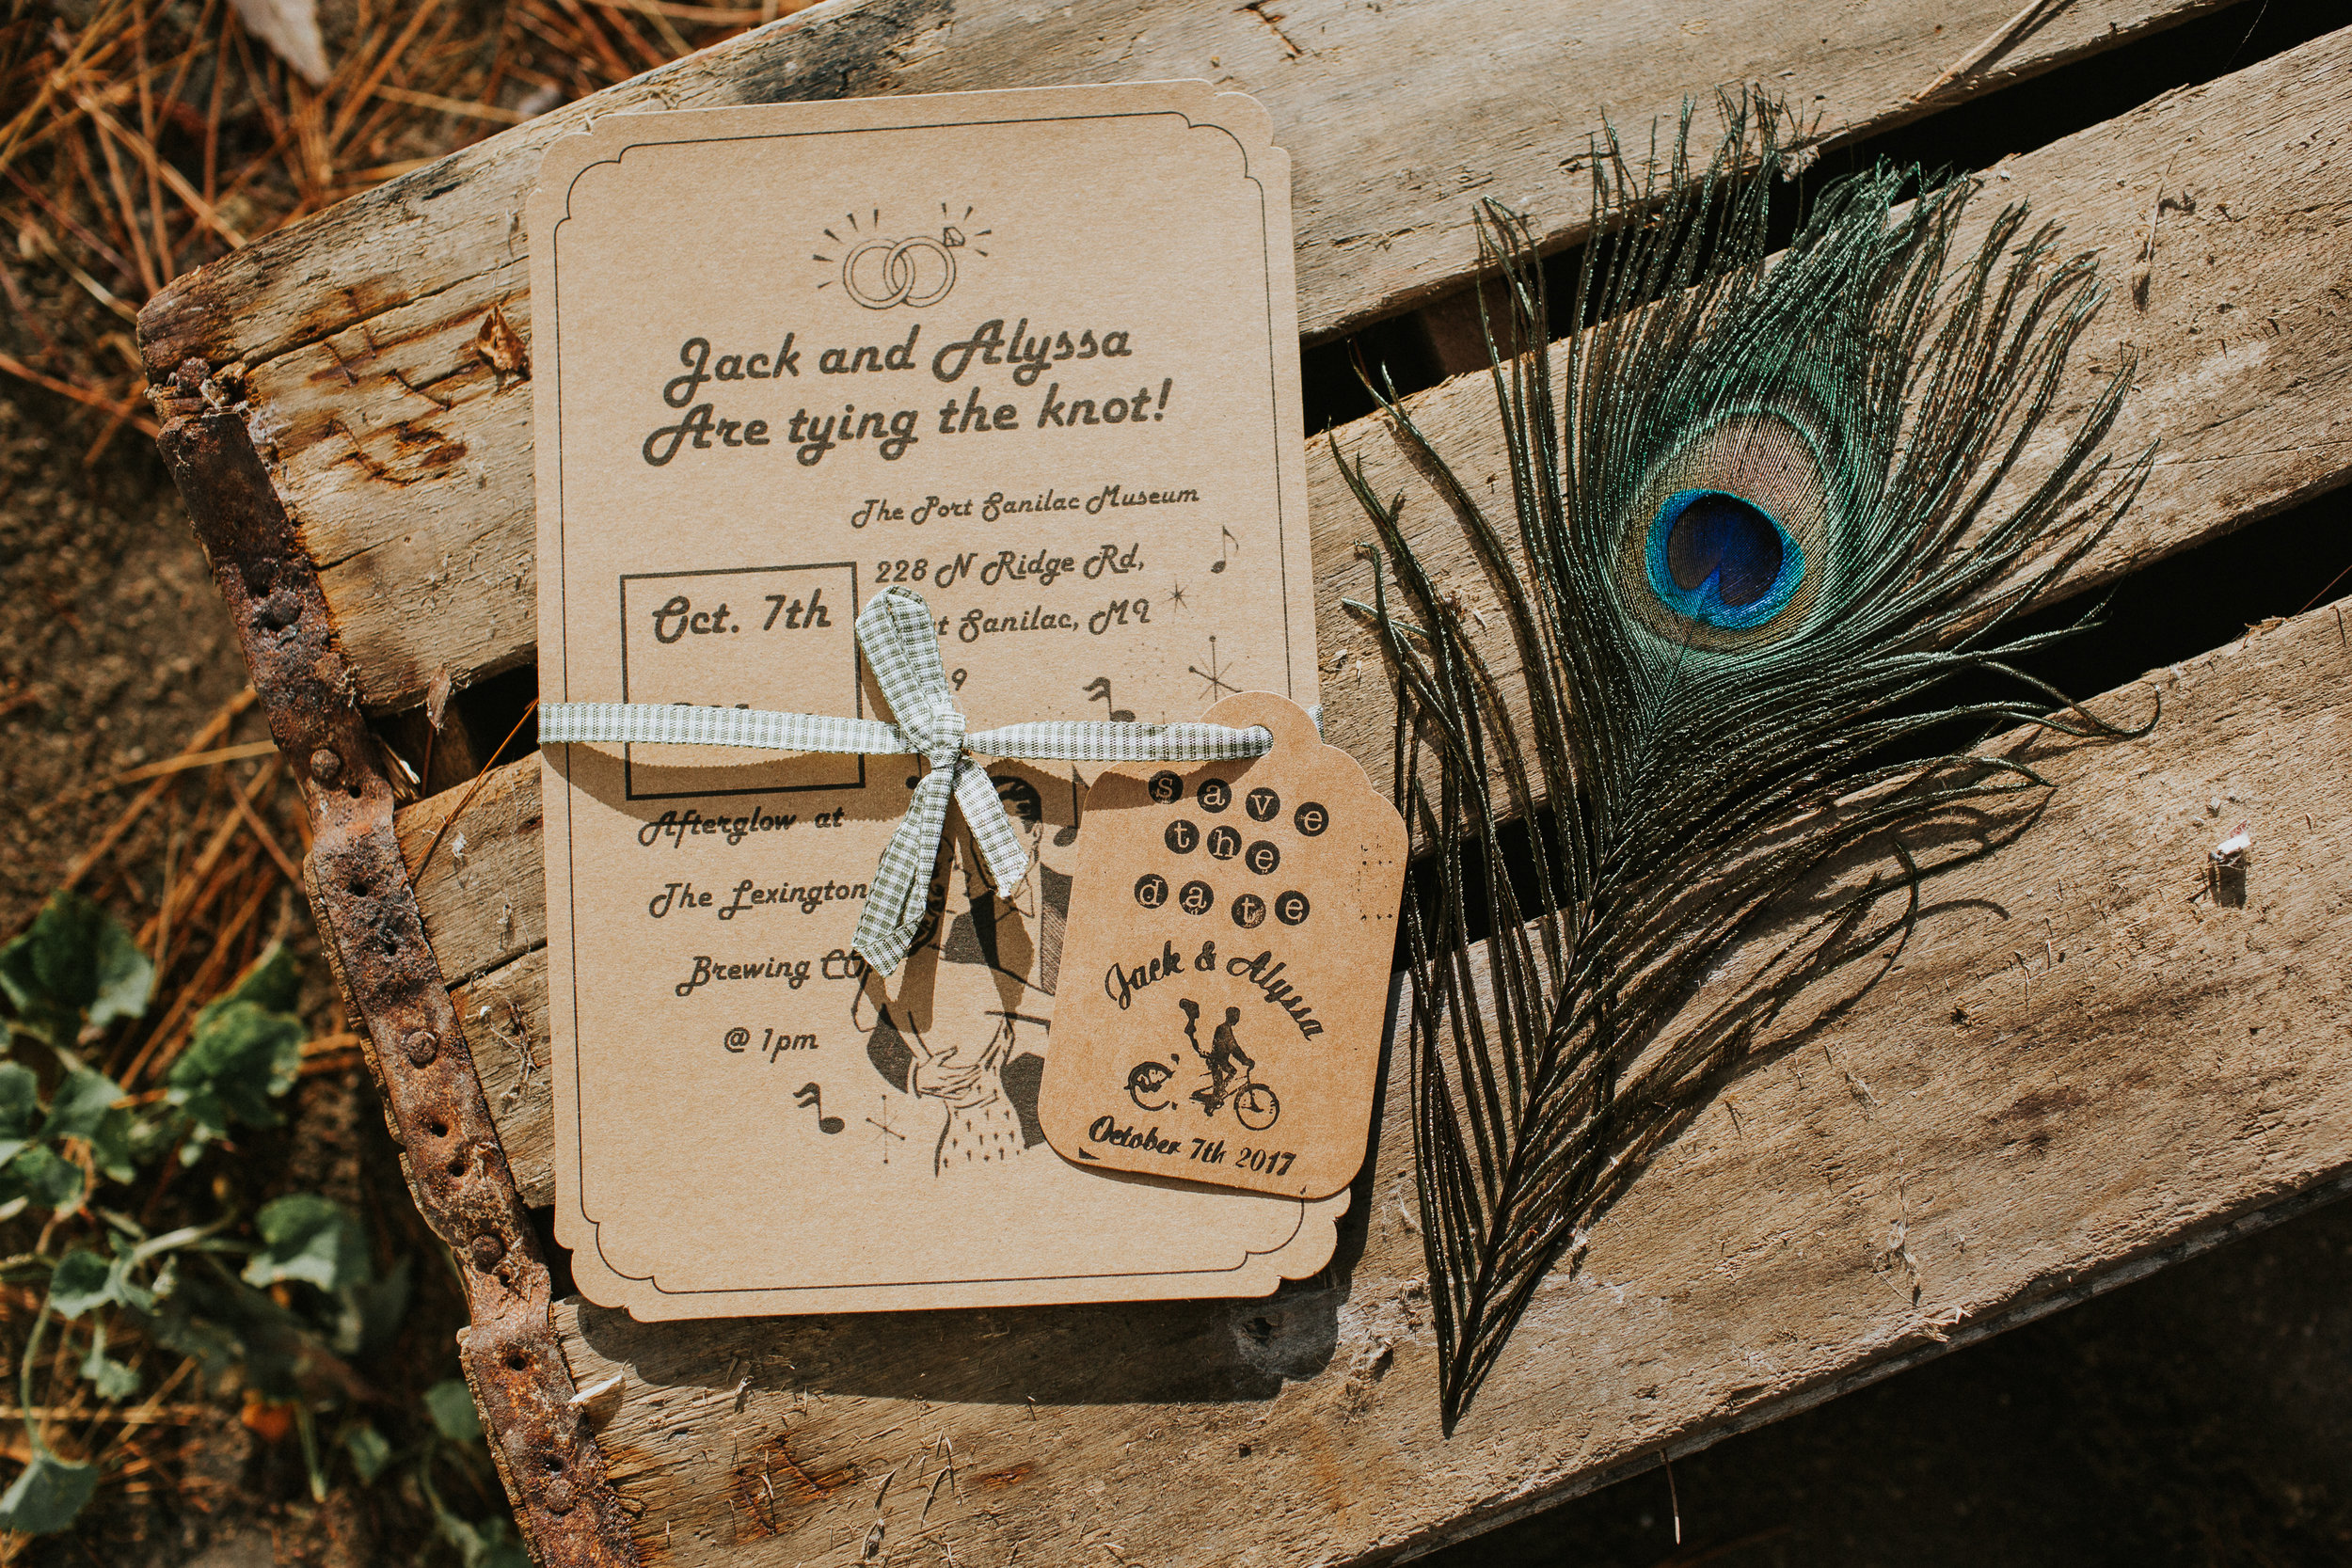 Jack and Alyssa
Are tying the knot!
The Port Sanilac Museum
228 N Ridge Rd,
Sanilac, MI
Oct. 7th
Afterglow at
The Lexington
Brewing CO
@ 1pm
save
the
date
Jack & Alyssa
October 7th 2017